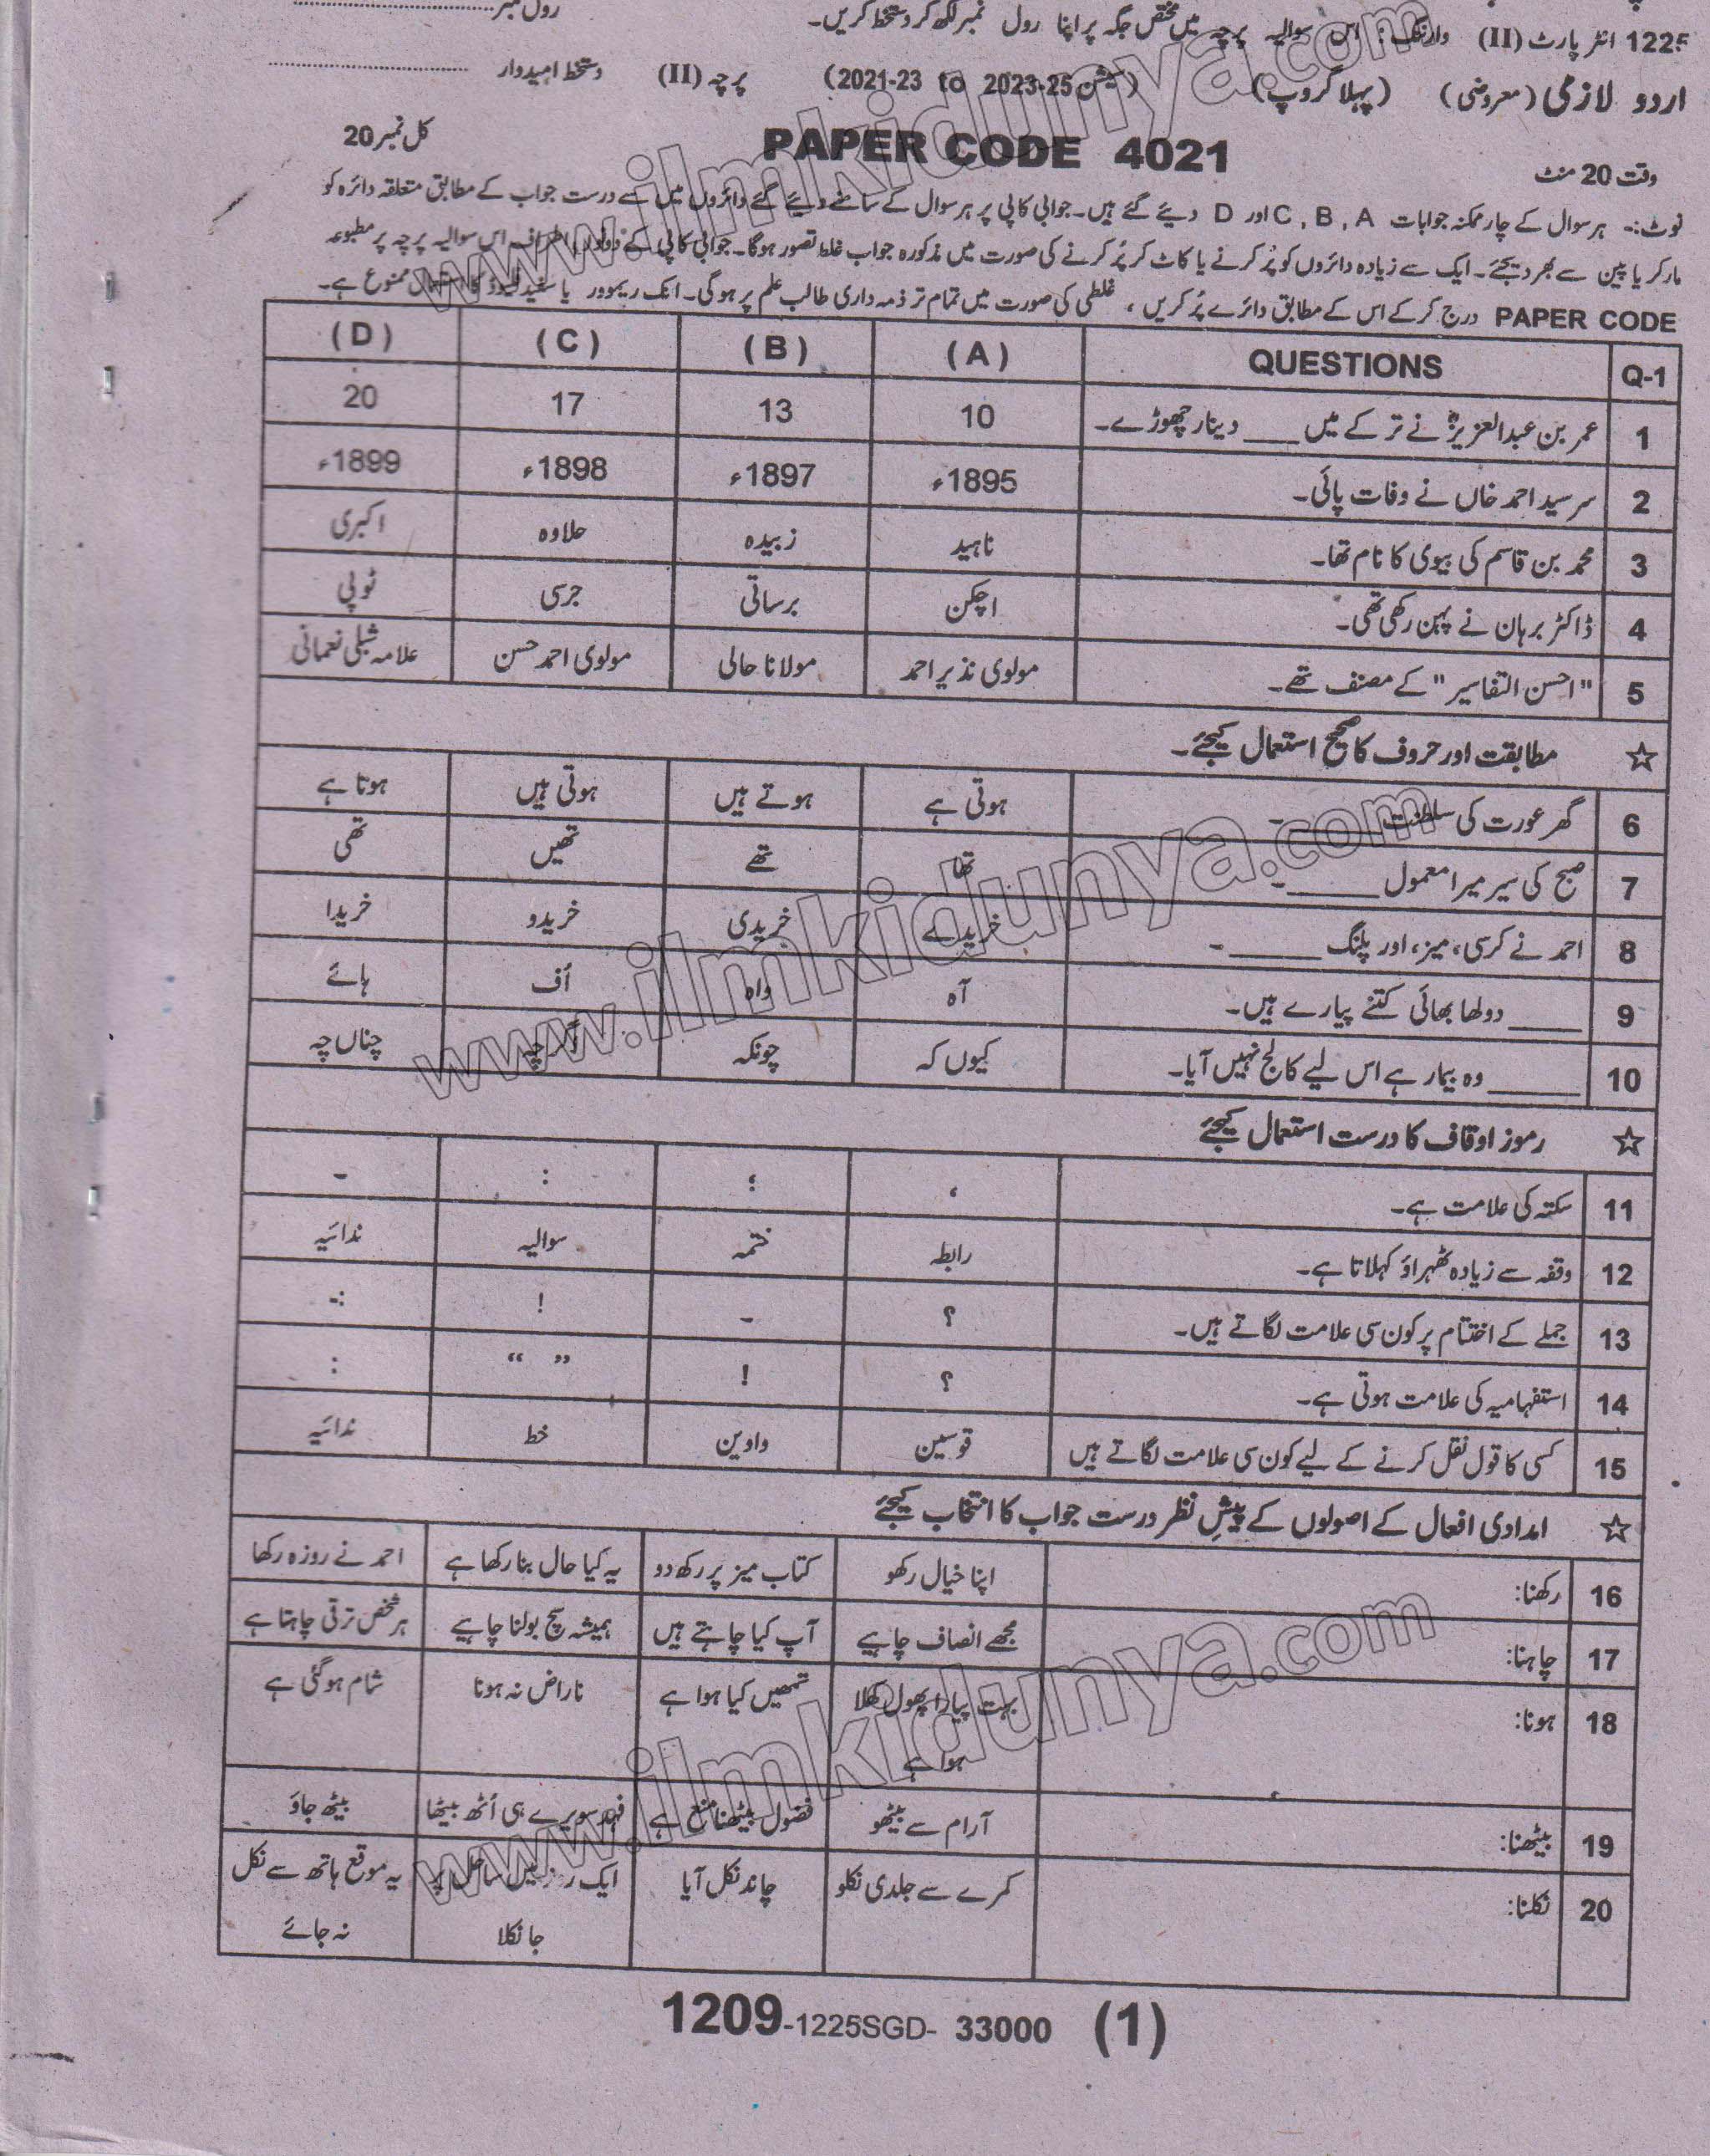 رول نمبر
1225 انٹر پارٹ (II) وارننگ: اس سوالیہ پرچہ میں مختص جگہ پر اپنا رول نمبر لکھ کر دستخط کریں۔
اردو لازمی (معروضی) (پہلا گروپ) (سیشن 2023-25 to 2021-23) پرچہ (II) دستخط امیدوار
وقت 20 منٹ PAPER CODE 4021 کل نمبر 20
نوٹ:۔ ہر سوال کے چار ممکنہ جوابات A , B , C اور D دیئے گئے ہیں۔ جوابی کاپی پر ہر سوال کے سامنے دیئے گئے دائروں میں سے درست جواب کے مطابق متعلقہ دائرہ کو
مارکر یا پین سے بھر دیجئے۔ ایک سے زیادہ دائروں کو پُر کرنے یا کاٹ کر پُر کرنے کی صورت میں مذکورہ جواب غلط تصور ہوگا۔ جوابی کاپی کے دونوں اطراف اس سوالیہ پرچہ پر مطبوعہ
PAPER CODE درج کر کے اس کے مطابق دائرے پُر کریں ، غلطی کی صورت میں تمام تر ذمہ داری طالب علم پر ہوگی۔ انک ریموور یا سفید فلیوڈ کا استعمال ممنوع ہے۔
Q-1 QUESTIONS (A) (B) (C) (D)
1 عمر بن عبدالعزیزؒ نے ترکے میں ____ دینار چھوڑے۔ 10 13 17 20
2 سر سید احمد خاں نے وفات پائی۔ 1895ء 1897ء 1898ء 1899ء
3 محمد بن قاسم کی بیوی کا نام تھا۔ ناہید زبیدہ حلاوہ اکبری
4 ڈاکٹر برہان نے پہن رکھی تھی۔ اچکن برساتی جرسی ٹوپی
5 "احسن التفاسیر" کے مصنف تھے۔ مولوی نذیر احمد مولانا حالی مولوی احمد حسن علامہ شبلی نعمانی
☆ مطابقت اور حروف کا صحیح استعمال کیجئے۔
6 گھر عورت کی سلطنت ____۔ ہوتی ہے ہوتے ہیں ہوتی ہیں ہوتا ہے
7 صبح کی سیر میرا معمول ____۔ تھا تھے تھیں تھی
8 احمد نے کرسی، میز، اور پلنگ ____۔ خریدے خریدی خریدو خریدا
9 ____ دولھا بھائی کتنے پیارے ہیں۔ آہ واہ اُف ہائے
10 ____ وہ بیمار ہے اس لیے کالج نہیں آیا۔ کیوں کہ چونکہ اگرچہ چناں چہ
☆ رموز اوقاف کا درست استعمال کیجئے
11 سکتہ کی علامت ہے۔ ، ؛ : ۔
12 وقفہ سے زیادہ ٹھہراؤ کہلاتا ہے۔ رابطہ ختمہ سوالیہ ندائیہ
13 جملے کے اختتام پر کون سی علامت لگاتے ہیں۔ ؟ ۔ ! :۔
14 استفہامیہ کی علامت ہوتی ہے۔ ؟ ! “ ” :
15 کسی کا قول نقل کرنے کے لیے کون سی علامت لگاتے ہیں قوسین واوین خط ندائیہ
☆ امدادی افعال کے اصولوں کے پیشِ نظر درست جواب کا انتخاب کیجئے
16 رکھنا: اپنا خیال رکھو کتاب میز پر رکھ دو یہ کیا حال بنا رکھا ہے احمد نے روزہ رکھا
17 چاہنا: مجھے انصاف چاہیے آپ کیا چاہتے ہیں ہمیشہ سچ بولنا چاہیے ہر شخص ترقی چاہتا ہے
18 ہونا: بہت پیارا پھول کھلا ہوا ہے تمھیں کیا ہوا ہے ناراض نہ ہونا شام ہو گئی ہے
19 بیٹھنا: آرام سے بیٹھو فضول بیٹھنا منع ہے فہد سویرے ہی اُٹھ بیٹھا بیٹھ جاؤ
20 نکلنا: کمرے سے جلدی نکلو چاند نکل آیا ایک روز میں ساحل پر جا نکلا یہ موقع ہاتھ سے نکل نہ جائے
1209-1225SGD- 33000 (1)
www.ilmkidunya.com
www.ilmkidunya.com
www.ilmkidunya.com